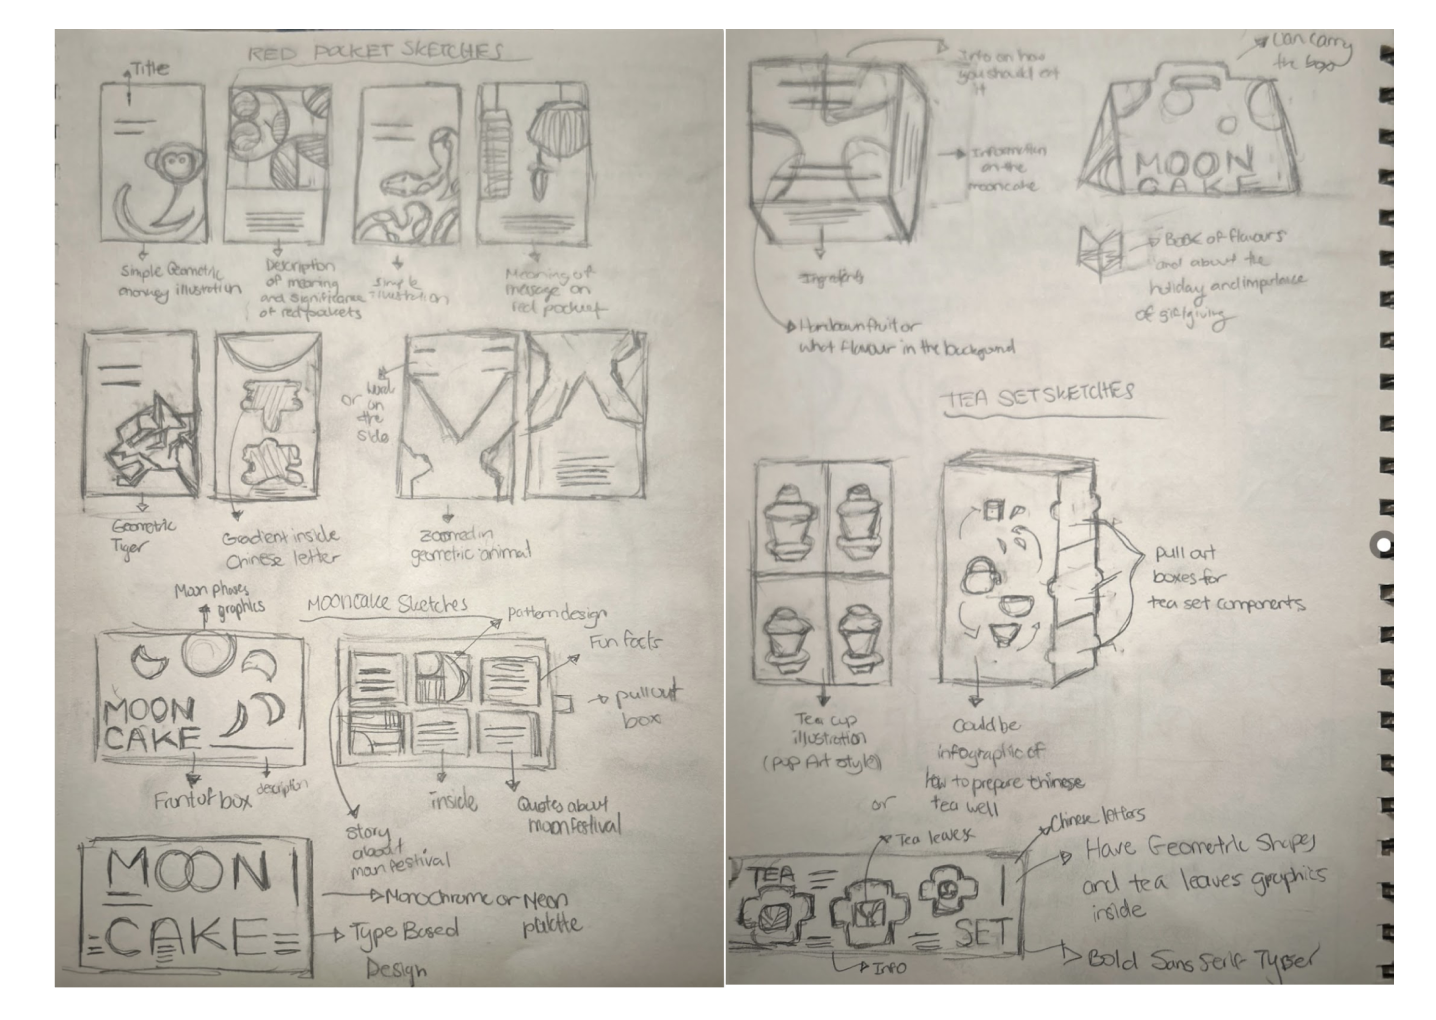 RED POCKET SKETCHES
Title
Simple Geometric
monkey illustration
Description
of meaning
and significance
of red pockets
simple
illustration
Meaning of
message on
red pocket
Geometric
Tiger
Gradient inside
Chinese letter
or
on
the
side
zoomed in
geometric animal
Moon phases
graphics
MOONCAKE Sketches
pattern design
Fun facts
pull out
box
MOON
CAKE
Front of box
description
inside
Quotes about
moon festival
story
about
moon festival
MOON
CAKE
Monochrome or Neon
palette
Type Based
Design
Info on how
you should eat
it
Information
on the
mooncake
Ingredients
what flavour in the background
Can carry
the box
MOON
CAKE
Book of flavours
and about the
holiday and importance
of gift giving
TEA SET SKETCHES
pull out
boxes for
tea set components
Tea cup
illustration
(pop Art style)
or
Could be
infographic of
how to prepare chinese
tea well
Tea leaves
Chinese letters
TEA
SET
Have Geometric Shapes
and tea leaves graphics
inside
Info
Bold Sans Serif